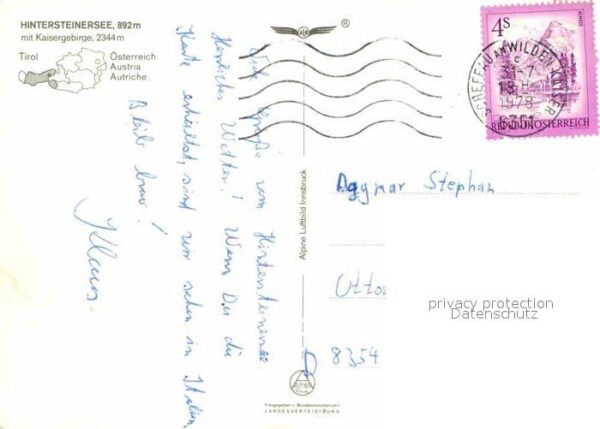 HINTERSTEINERSEE, 892 m
mit Kaisergebirge, 2344 m
Tirol
Österreich
Austria
Autriche
®
4S
ALMSEE
REPUBLIK ÖSTERREICH
WILDEN KAISER
1978
6351
Viele Grüße vom Hintersteinersee.
Herrliches Wetter! Wenn Du die
Karte erhältst, sind wir schon in Italien
Bleib brav!
Klaus.
Alpine Luftbild Innsbruck
Dagmar Stephan
Ottos
8354
privacy protection
Datenschutz
Freigegeben v. Bundesministerium f.
LANDESVERTEIDIGUNG